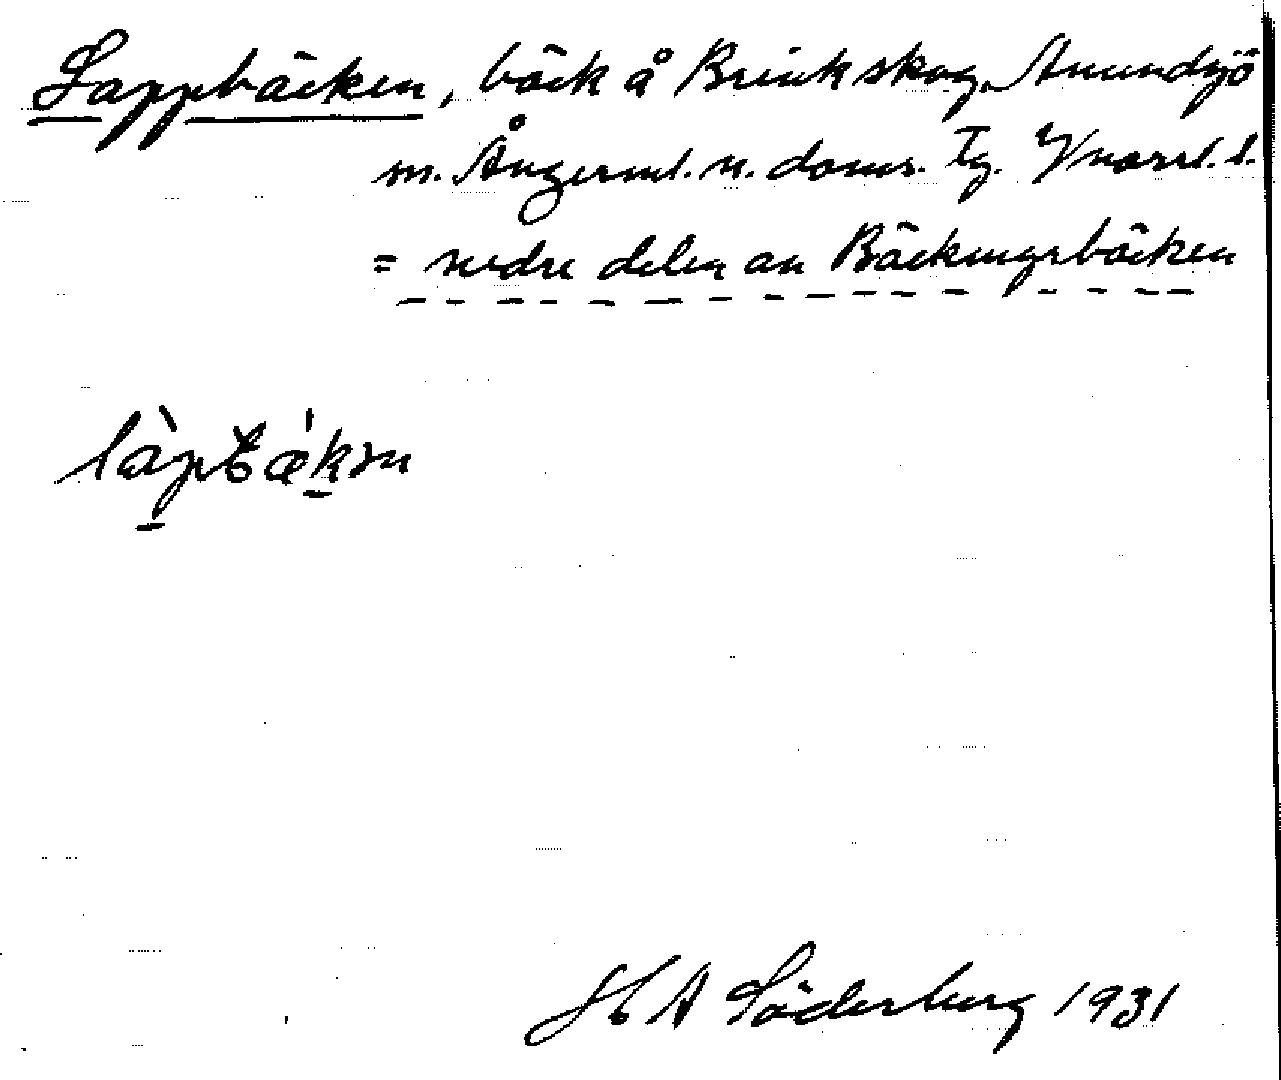 Lappbäcken, bäck å Brink skog, Anundsjö
m. Ångerml. n. doms. Tg. Ynorrl. l.
= nedre delen av Bäckingsbäcken
làpbǽkən
H A Söderberg 1931